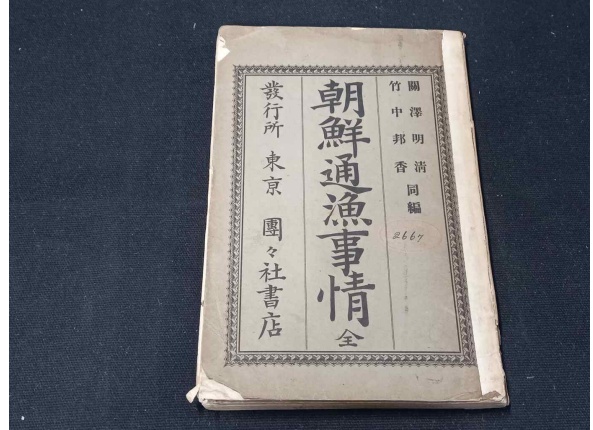 關澤明清
竹中邦香 同編
2667
朝鮮通漁事情 全
發行所 東亰 團々社書店